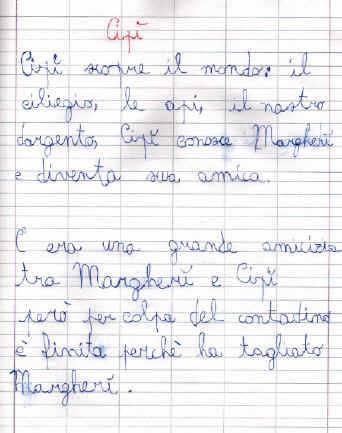 Cipĭ
Cipĭ scopre il mondo: il
ciliegio, le api, il nastro
dargento, Cipĭ conosce Margherĭ
e diventa sua amica.
C era una grande amicizia
tra Margherĭ e Cipĭ
però per colpa del contadino
è finita perchè ha tagliato
Margherĭ.